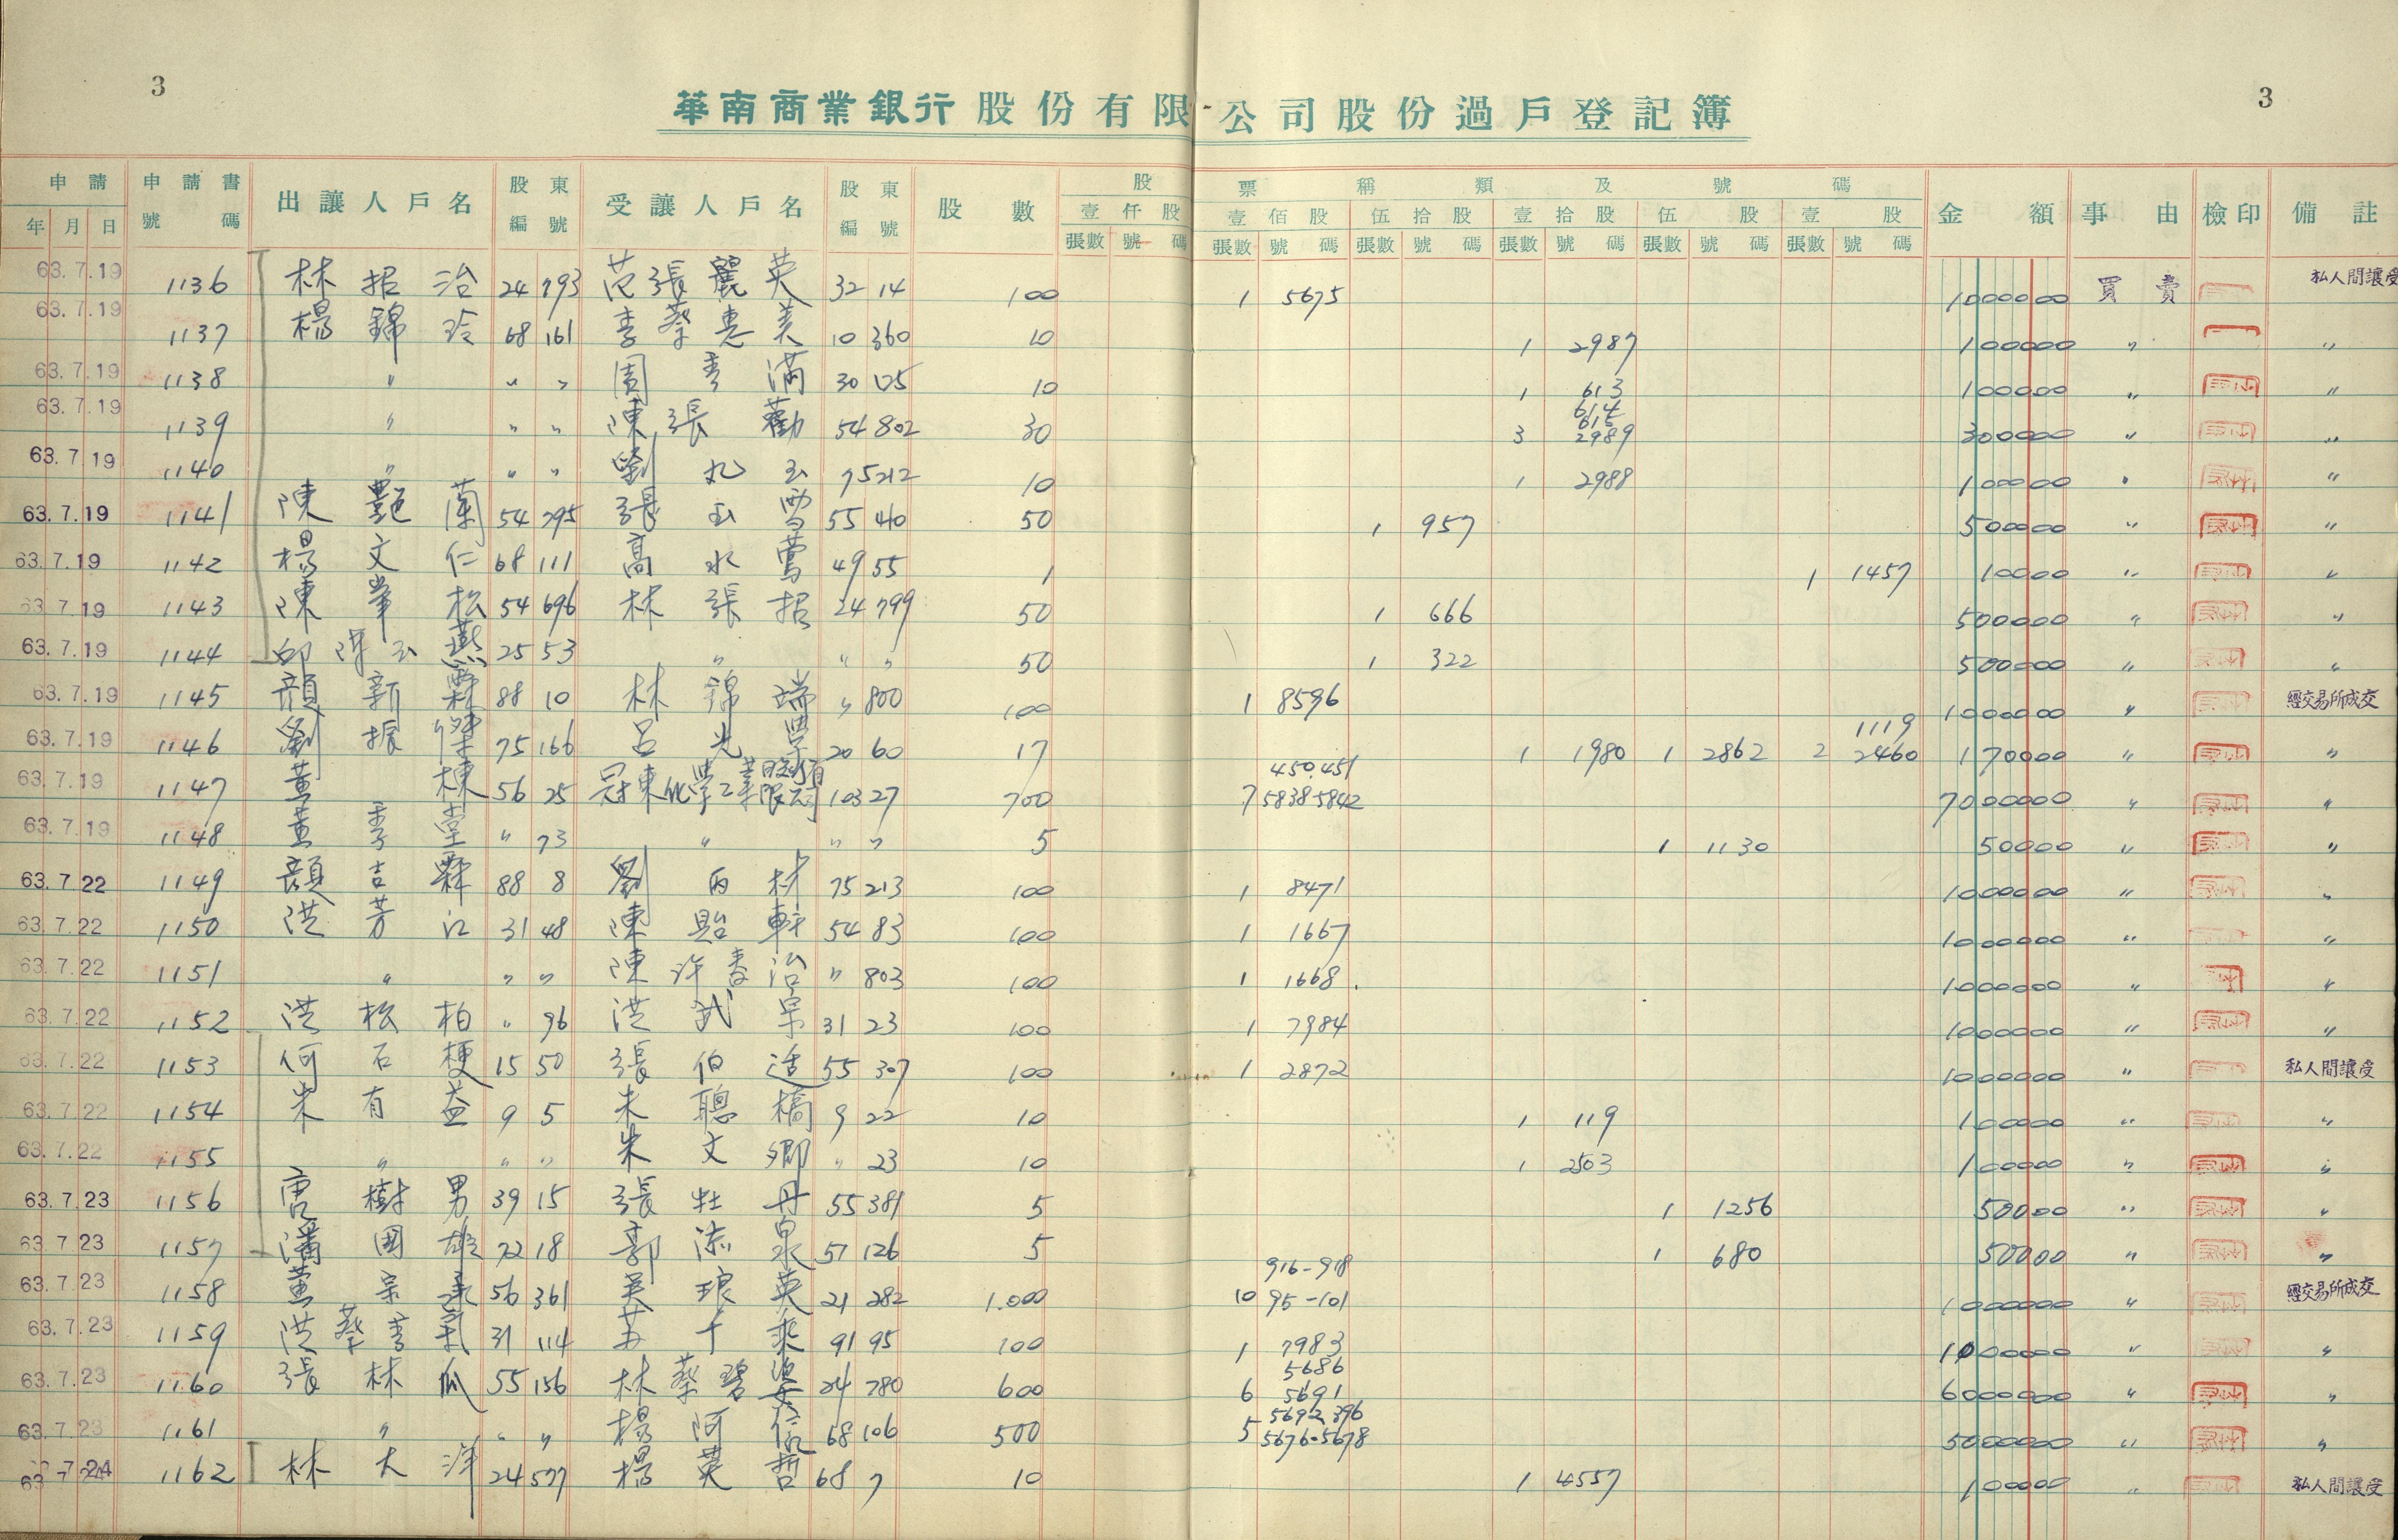 3
3
華南商業銀行股份有限公司股份過戶登記簿
申請 申請書 出讓人戶名 股東 受讓人戶名 股東 股數 股票稱類及號碼 金額 事由 檢印 備註
年 月 日 號碼 編號 編號 壹仟股 壹佰股 伍拾股 壹拾股 伍股 壹股
張數 號碼 張數 號碼 張數 號碼 張數 號碼 張數 號碼 張數 號碼
63.7.19 1136 林招治 24 793 范張麗英 32 14 100 1 5675 1000000 買賣 私人間讓受
63.7.19 1137 楊錦玲 68 161 李蔡惠美 10 360 10 1 2987 100000 〃 〃
63.7.19 1138 〃 〃 〃 周秀滿 30 10 1 613 100000 〃 〃
63.7.19 1139 〃 〃 〃 陳張勸 54 802 30 3 614 615 2989 300000 〃 〃
63.7.19 1140 〃 〃 〃 劉玉 75 212 10 1 2988 100000 〃 〃
63.7.19 1141 陳艷蘭 54 795 張玉雪 55 410 50 1 957 500000 〃 〃
63.7.19 1142 楊文仁 68 111 高水鶯 49 55 1 1 1457 10000 〃 〃
63.7.19 1143 陳崇松 54 696 林張招 24 799 50 1 666 500000 〃 〃
63.7.19 1144 邱洋玉燕 25 53 〃 〃 〃 50 1 322 500000 〃 〃
63.7.19 1145 顏新霖 88 10 林錦端 〃 800 100 1 8596 1000000 〃 經交易所成交
63.7.19 1146 劉振傑 75 166 呂光學 20 60 17 1 1980 1 2862 2 1119 2460 170000 〃 〃
63.7.19 1147 黃棟 56 25 冠東化學工業股份有限公司 103 27 700 7 450.451 5838-5842 7000000 〃 〃
63.7.19 1148 黃季堂 〃 73 〃 〃 〃 5 1 1130 50000 〃 〃
63.7.22 1149 顏吉霖 88 8 劉丙材 75 213 100 1 8471 1000000 〃 〃
63.7.22 1150 洪芳江 31 48 陳貽軒 54 83 100 1 1667 1000000 〃 〃
63.7.22 1151 〃 〃 〃 陳許春治 〃 803 100 1 1668 1000000 〃 〃
63.7.22 1152 洪松柏 〃 96 洪武宗 31 23 100 1 7984 1000000 〃 〃
63.7.22 1153 何石梗 15 50 張伯 55 307 100 1 2872 1000000 〃 私人間讓受
63.7.22 1154 朱有益 9 5 朱聰橋 9 22 10 1 119 100000 〃 〃
63.7.22 1155 〃 〃 〃 朱文鄉 〃 23 10 1 2503 100000 〃 〃
63.7.23 1156 唐樹男 39 15 張牡丹 55 381 5 1 1256 50000 〃 〃
63.7.23 1157 潘國雄 72 18 郭添泉 51 126 5 1 680 50000 〃 〃
63.7.23 1158 黃宗 56 361 吳琅英 21 282 1.000 10 916-918 95-101 10000000 〃 經交易所成交
63.7.23 1159 洪蔡 31 114 91 95 100 1 7983 1000000 〃 〃
63.7.23 1160 張林瓜 55 156 林蔡碧婆 24 780 600 6 5686 5691 6000000 〃 〃
63.7.23 1161 〃 〃 〃 楊阿信 68 106 500 5 5692 396 5676-5678 5000000 〃 〃
63.7.24 1162 林大洋 24 577 楊英哲 68 7 10 1 4557 100000 〃 私人間讓受